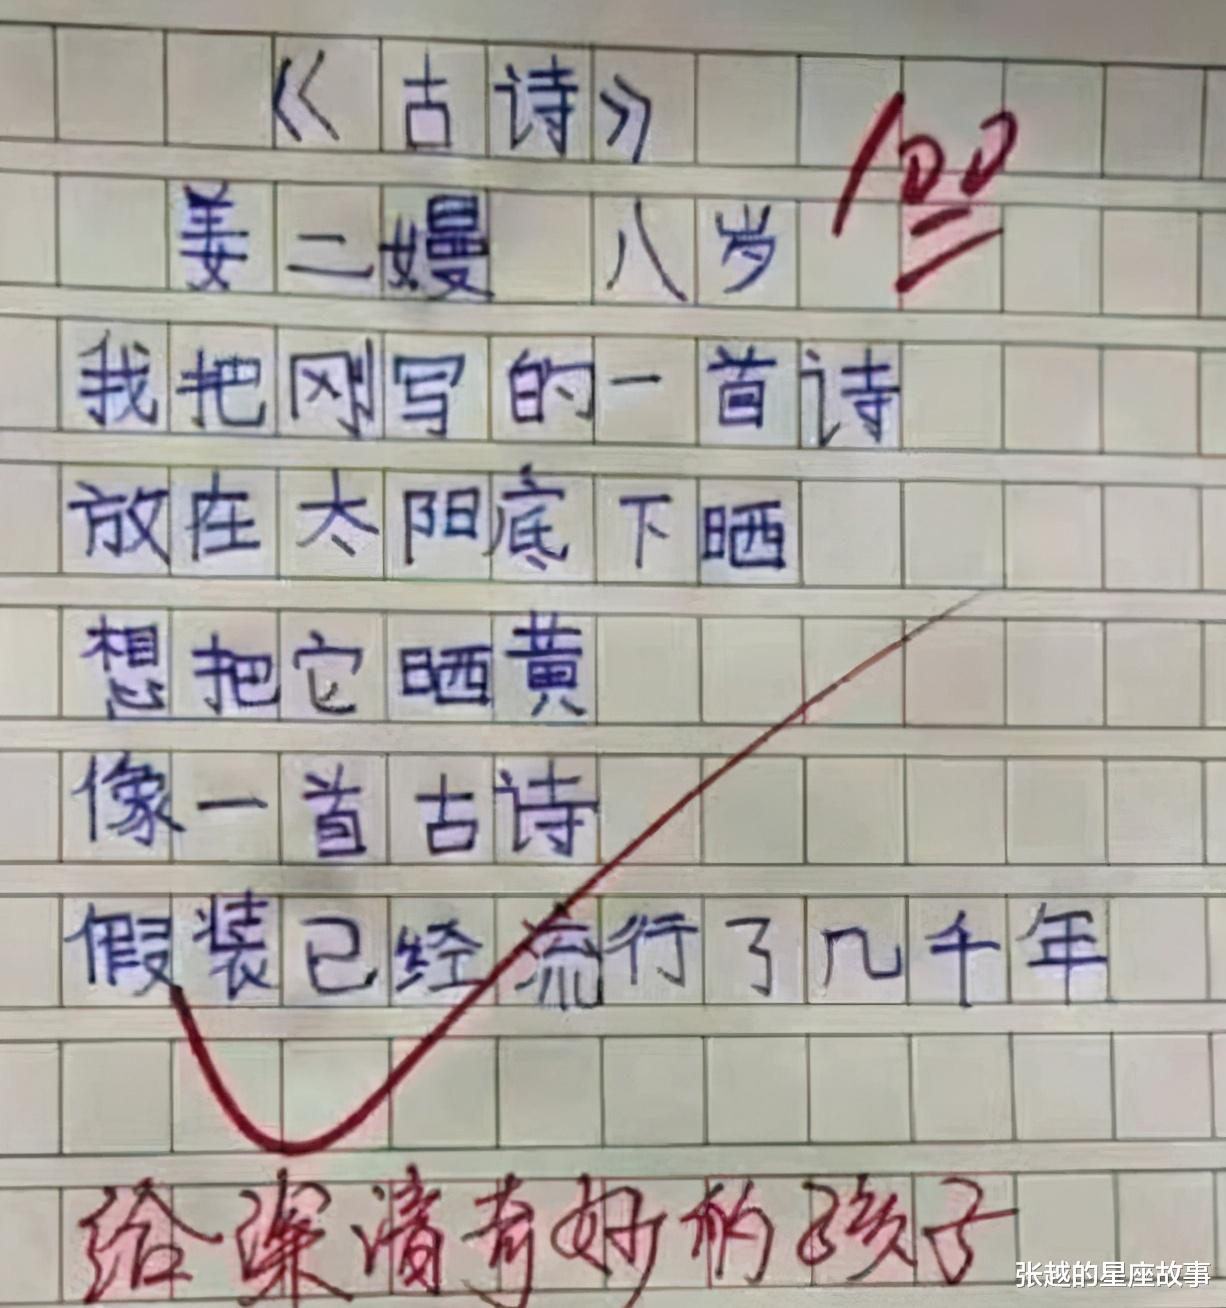 《古诗》
100
姜二嫚 八岁
我把刚写的一首诗
放在太阳底下晒
想把它晒黄
像一首古诗
假装已经流行了几千年
给深情奇妙的孩子
张越的星座故事